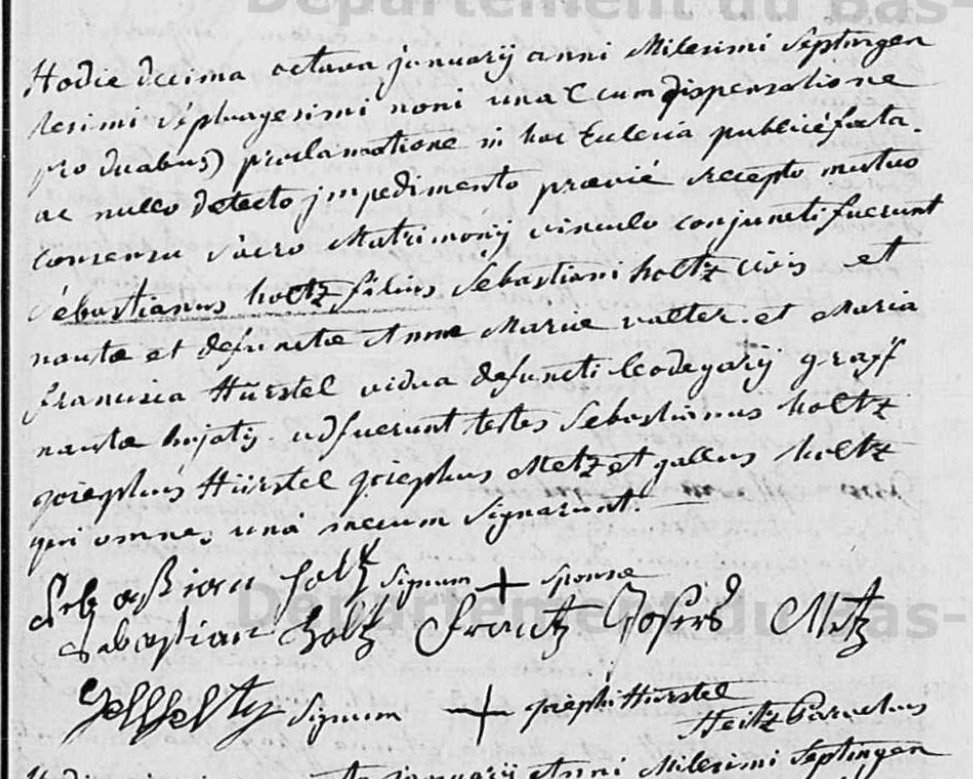 Département du Bas-
Hodie decima octava januarij anni Milesimi Septingen
tesimi Septuagesimi noni una (cum dispensatione
pro duabus) proclamatione in hac Eclesia publicé facta
ac nullo detecto jmpedimento praevié recepto mutuo
consensu sacro Matrimonij vinculo conjuncti fuerunt
Sebastianus holtz filius Sebastiani holtz civis et
nautae et defunctae Annae Mariae valter et Maria
francisca Hürstel vidua defuncti leodegarij graff
nautae hujatis. adfuerunt testes Sebastianus holtz
josephus Hürstel josephus Metz et gallus holtz
qui omnes una mecum signarunt.
Sebastian holtz signum + sponsae
Sebastian holtz Frantz Joseph Metz
signum + josephi Hürstel
Heitz Parochus
Département du Bas-
januarij anni Milesimi Septingen